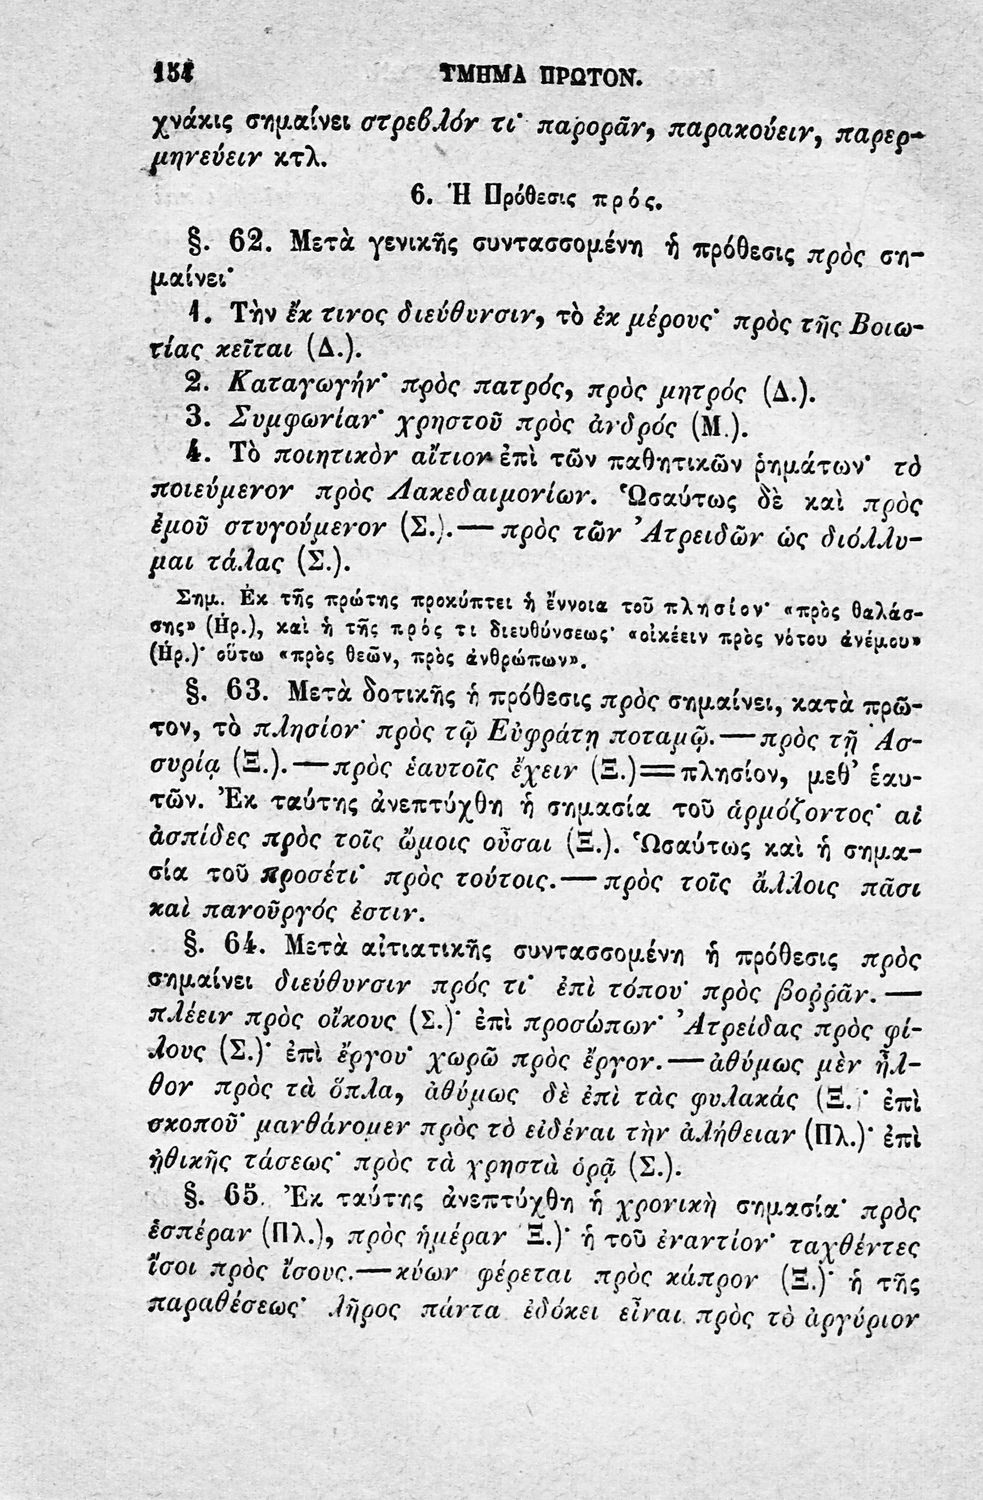 154 ΤΜΗΜΑ ΠΡΩΤΟΝ.
χνάκις σημαίνει στρεβλόν τι· παρορᾶν, παρακούειν, παρερ-
μηνεύειν κτλ.
6. Ἡ Πρόθεσις πρός.
§. 62. Μετὰ γενικῆς συντασσομένη ἡ πρόθεσις πρὸς ση-
μαίνει·
1. Τὴν ἔκ τινος διεύθυνσιν, τὸ ἐκ μέρους· πρὸς τῆς Βοιω-
τίας κεῖται (Δ.).
2. Καταγωγήν· πρὸς πατρός, πρὸς μητρός (Δ.).
3. Συμφωνίαν· χρηστοῦ πρὸς ἀνδρός (Μ.).
4. Τὸ ποιητικὸν αἴτιον ἐπὶ τῶν παθητικῶν ῥημάτων· τὸ
ποιεύμενον πρὸς Λακεδαιμονίων. Ὡσαύτως δὲ καὶ πρὸς
ἐμοῦ στυγούμενον (Σ.).— πρὸς τῶν Ἀτρειδῶν ὡς διόλλυ-
μαι τάλας (Σ.).
Σημ. Ἐκ τῆς πρώτης προκύπτει ἡ ἔννοια τοῦ πλησίον· «πρὸς θαλάσ-
σης» (Ηρ.), καὶ ἡ τῆς πρός τι διευθύνσεως· «οἰκέειν πρὸς νότου ἀνέμου»
(Ηρ.)· οὕτω «πρὸς θεῶν, πρὸς ἀνθρώπων».
§. 63. Μετὰ δοτικῆς ἡ πρόθεσις πρὸς σημαίνει, κατὰ πρῶ-
τον, τὸ πλησίον· πρὸς τῷ Εὐφράτῃ ποταμῷ.— πρὸς τῇ Ἀσ-
συρίᾳ (Ξ.).— πρὸς ἑαυτοῖς ἔχειν (Ξ.)=πλησίον, μεθ' ἑαυ-
τῶν. Ἐκ ταύτης ἀνεπτύχθη ἡ σημασία τοῦ ἁρμόζοντος· αἱ
ἀσπίδες πρὸς τοῖς ὤμοις οὖσαι (Ξ.). Ὡσαύτως καὶ ἡ σημα-
σία τοῦ προσέτι· πρὸς τούτοις.— πρὸς τοῖς ἄλλοις πᾶσι
καὶ πανοῦργός ἐστιν.
§. 64. Μετὰ αἰτιατικῆς συντασσομένη ἡ πρόθεσις πρὸς
σημαίνει διεύθυνσιν πρός τι· ἐπὶ τόπου· πρὸς βοῤῥᾶν.—
πλέειν πρὸς οἴκους (Σ.)· ἐπὶ προσώπων· Ἀτρείδας πρὸς φί-
λους (Σ.)· ἐπὶ ἔργου· χωρῶ πρὸς ἔργον.— ἀθύμως μὲν ἦλ-
θον πρὸς τὰ ὅπλα, ἀθύμως δὲ ἐπὶ τὰς φυλακάς (Ξ.)· ἐπὶ
σκοποῦ· μανθάνομεν πρὸς τὸ εἰδέναι τὴν ἀλήθειαν (Πλ.)· ἐπὶ
ἠθικῆς τάσεως· πρὸς τὰ χρηστὰ ὁρᾷ (Σ.).
§. 65. Ἐκ ταύτης ἀνεπτύχθη ἡ χρονικὴ σημασία· πρὸς
ἑσπέραν (Πλ.), πρὸς ἡμέραν Ξ.)· ἡ τοῦ ἐναντίον· ταχθέντες
ἴσοι πρὸς ἴσους.— κύων φέρεται πρὸς κάπρον (Ξ.)· ἡ τῆς
παραθέσεως· λῆρος πάντα ἐδόκει εἶναι πρὸς τὸ ἀργύριον